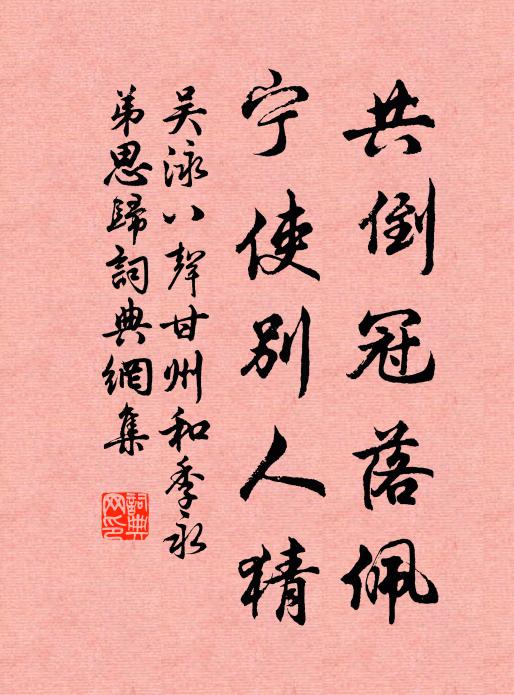 共倒冠落佩
宁使别人猜
吴泳八声甘州和季永
弟思歸詞典網集
詞典网印